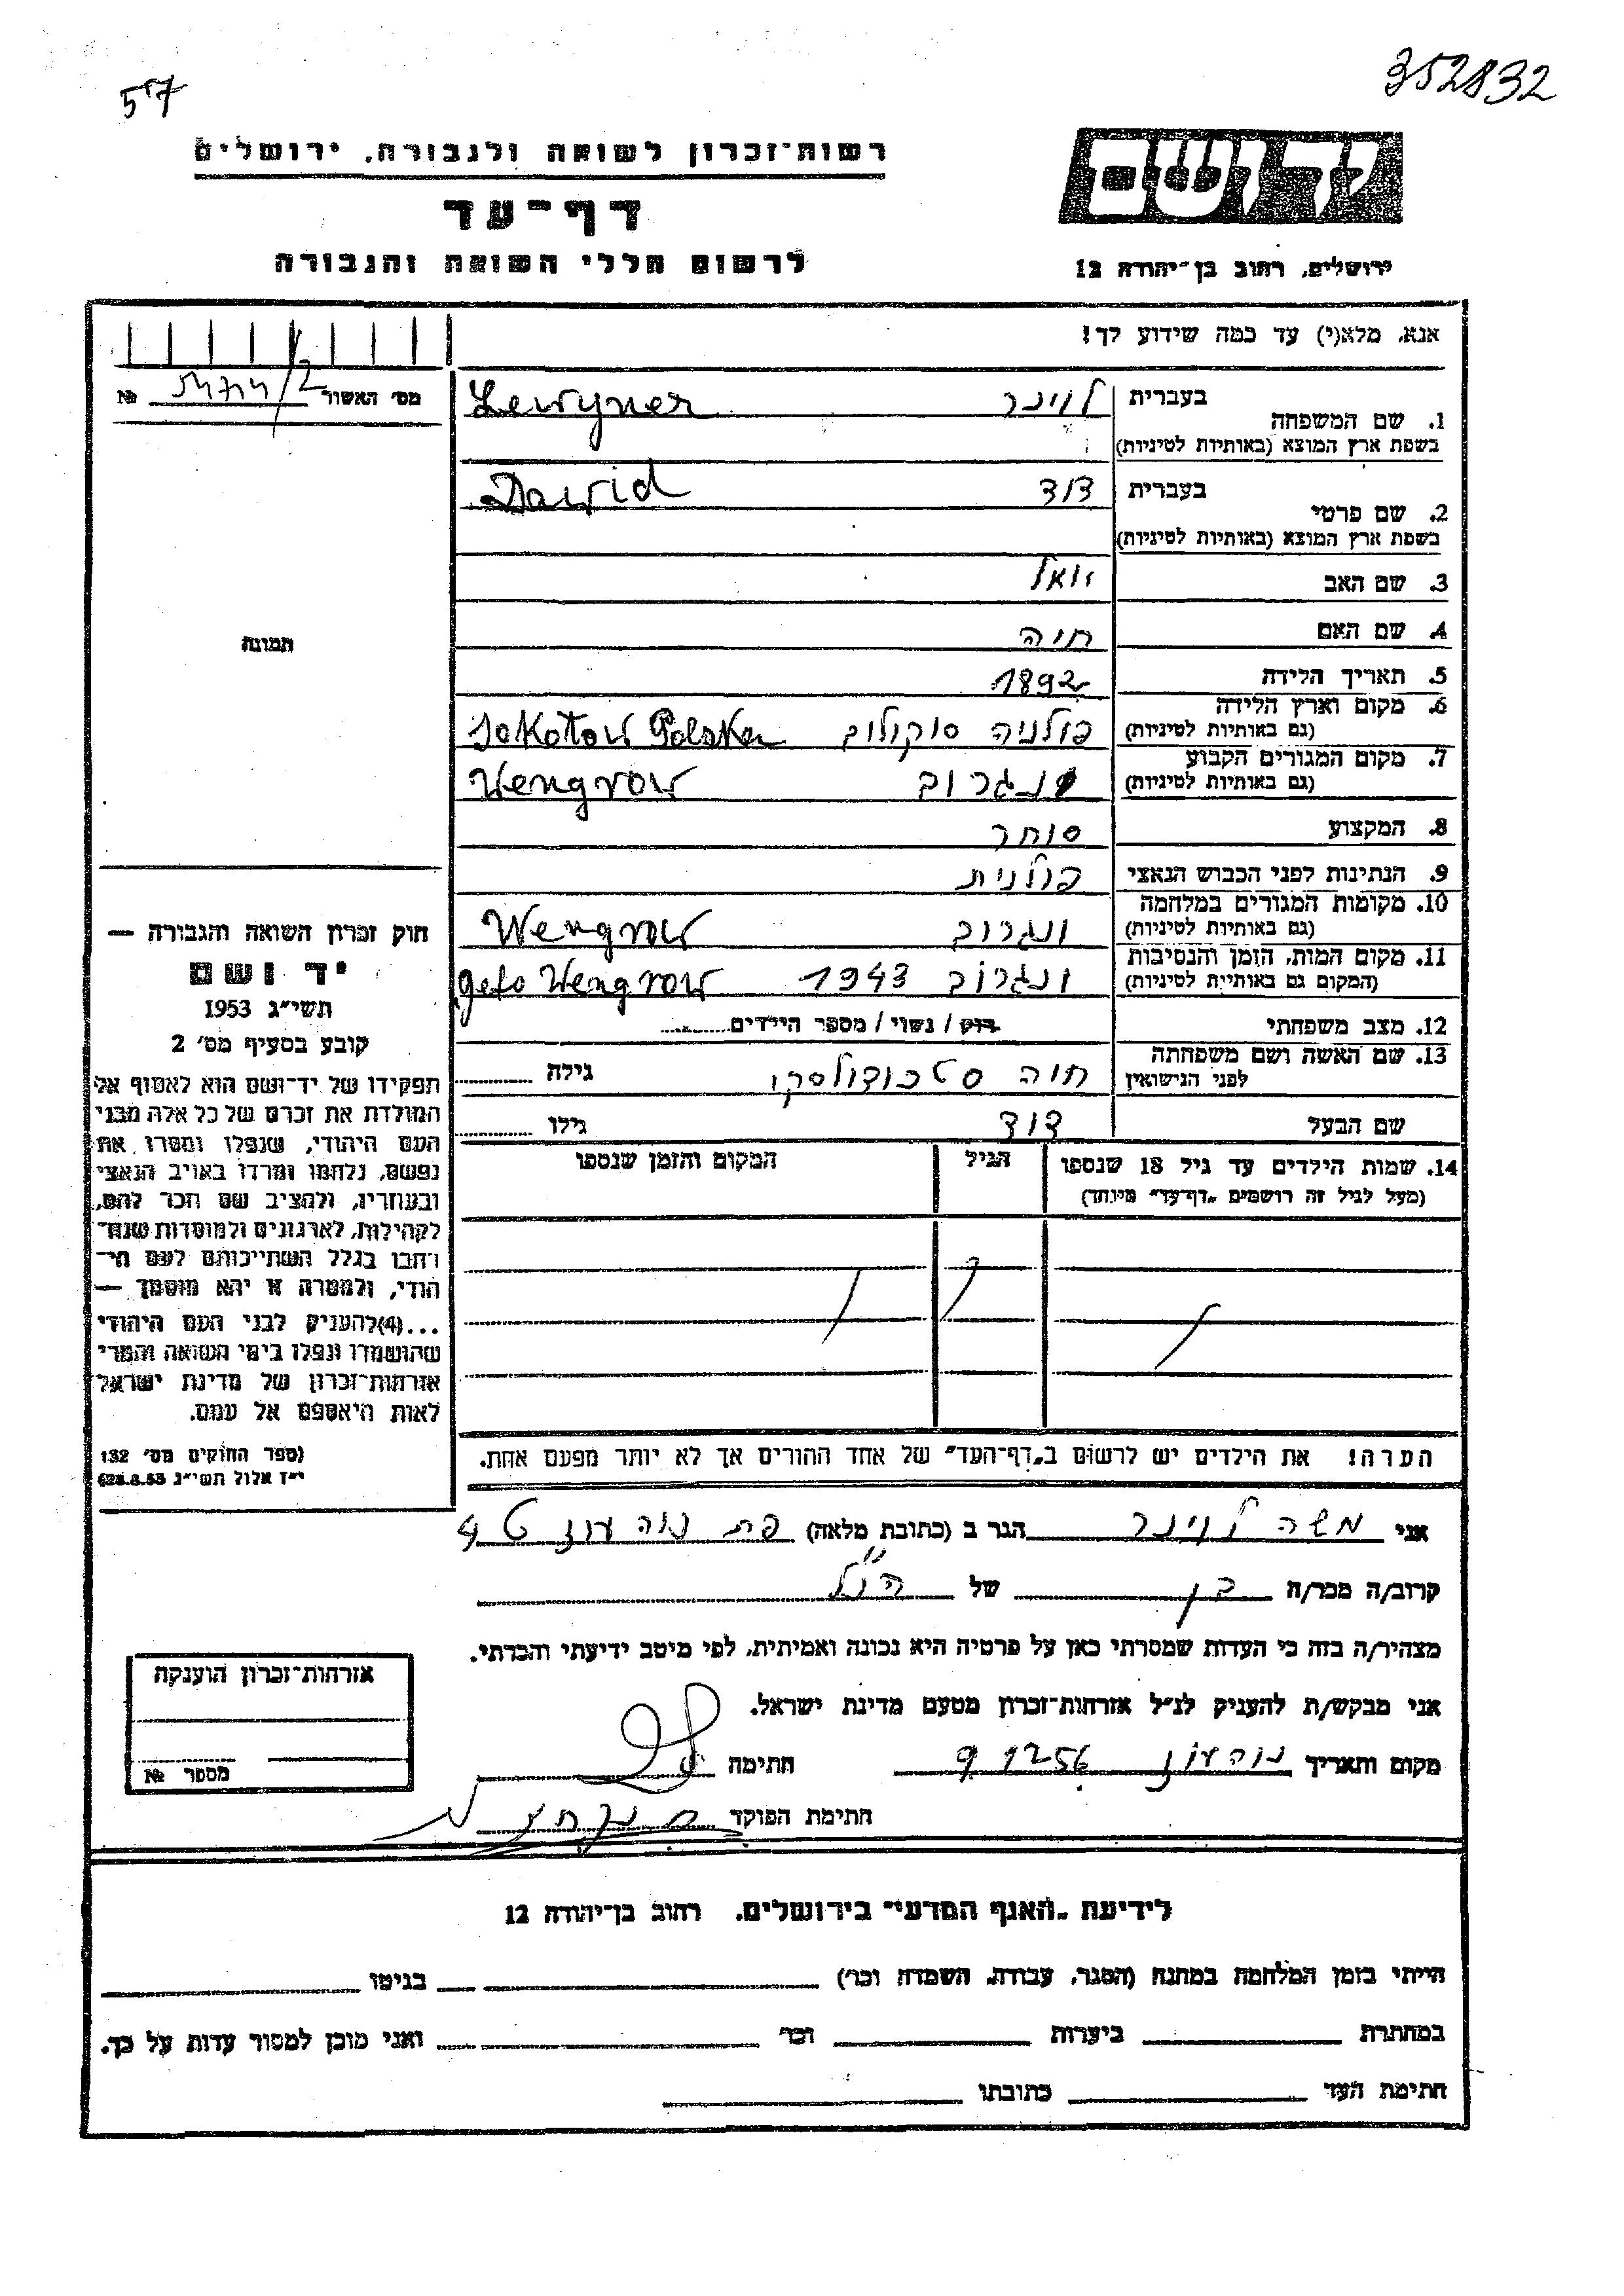 57
352832
רשות־זכרון לשואה ולגבורה, ירושלים
יד ושם
דף־עד
לרשום חללי השואה והגבורה
ירושלים, רחוב בן־יהודה 12
אנא, מלא(י) עד כמה שידוע לך!
מס׳ האשור №
1. שם המשפחה בעברית לוינר Lewyner
בשפת ארץ המוצא (באותיות לטיניות)
2. שם פרטי בעברית דוד Dawid
בשפת ארץ המוצא (באותיות לטיניות)
3. שם האב יואל
4. שם האם חיה
5. תאריך הלידה 1892
6. מקום וארץ הלידה פולניה סוקולוב Sokołow Polska
(גם באותיות לטיניות)
7. מקום המגורים הקבוע ונגרוב Wengrow
(גם באותיות לטיניות)
8. המקצוע סוחר
9. הנתינות לפני הכבוש הנאצי פולנית
10. מקומות המגורים במלחמה ונגרוב Wengrow
(גם באותיות לטיניות)
11. מקום המות, הזמן והנסיבות ונגרוב 1943 geto Wengrow
(המקום גם באותיות לטיניות)
12. מצב משפחתי רוק / נשוי / מספר הילדים
13. שם האשה ושם משפחתה חיה גילה
לפני הנישואין
שם הבעל דוד גילו
14. שמות הילדים עד גיל 18 שנספו הגיל המקום והזמן שנספו
(מעל לגיל זה רושמים „דף־עד" מיוחד)
הערה! את הילדים יש לרשום ב„דף־העד" של אחד ההורים אך לא יותר מפעם אחת.
תמונה
חוק זכרון השואה והגבורה —
יד ושם
תשי״ג 1953
קובע בסעיף מס׳ 2
תפקידו של יד־ושם הוא לאסוף אל
המולדת את זכרם של כל אלה מבני
העם היהודי, שנפלו ומסרו את
נפשם, נלחמו ומרדו באויב הנאצי
ובעוזריו, ולהציב שם וזכר להם,
לקהילות, לארגונים ולמוסדות שנח־
רבו בגלל השתייכותם לעם הי־
הודי, ולמטרה זו יהא מוסמך —
...(4)להעניק לבני העם היהודי
שהושמדו ונפלו בימי השואה והמרי
אזרחות־זכרון של מדינת ישראל
לאות היאספם אל עמם.
(ספר החוקים מס׳ 132
י״ז אלול תשי״ג 28.8.53)
אני משה לוינר הגר ב (כתובת מלאה) פת נוה עוז
קרוב/ה מכר/ה בן של הנ״ל
מצהיר/ה בזה כי העדות שמסרתי כאן על פרטיה היא נכונה ואמיתית, לפי מיטב ידיעתי והכרתי.
אני מבקש/ת להעניק לנ״ל אזרחות־זכרון מטעם מדינת ישראל.
מקום ותאריך נוה עוז 9 12 56 חתימה
חתימת הפוקד
אזרחות־זכרון הוענקה
מספר №
לידיעת „האגף המדעי" בירושלים, רחוב בן־יהודה 12
הייתי בזמן המלחמה במחנה (הסגר, עבודה, השמדה וכו׳) בגיטו
במחתרת ביערות וכו׳ ואני מוכן למסור עדות על כך.
חתימת העד כתובתו